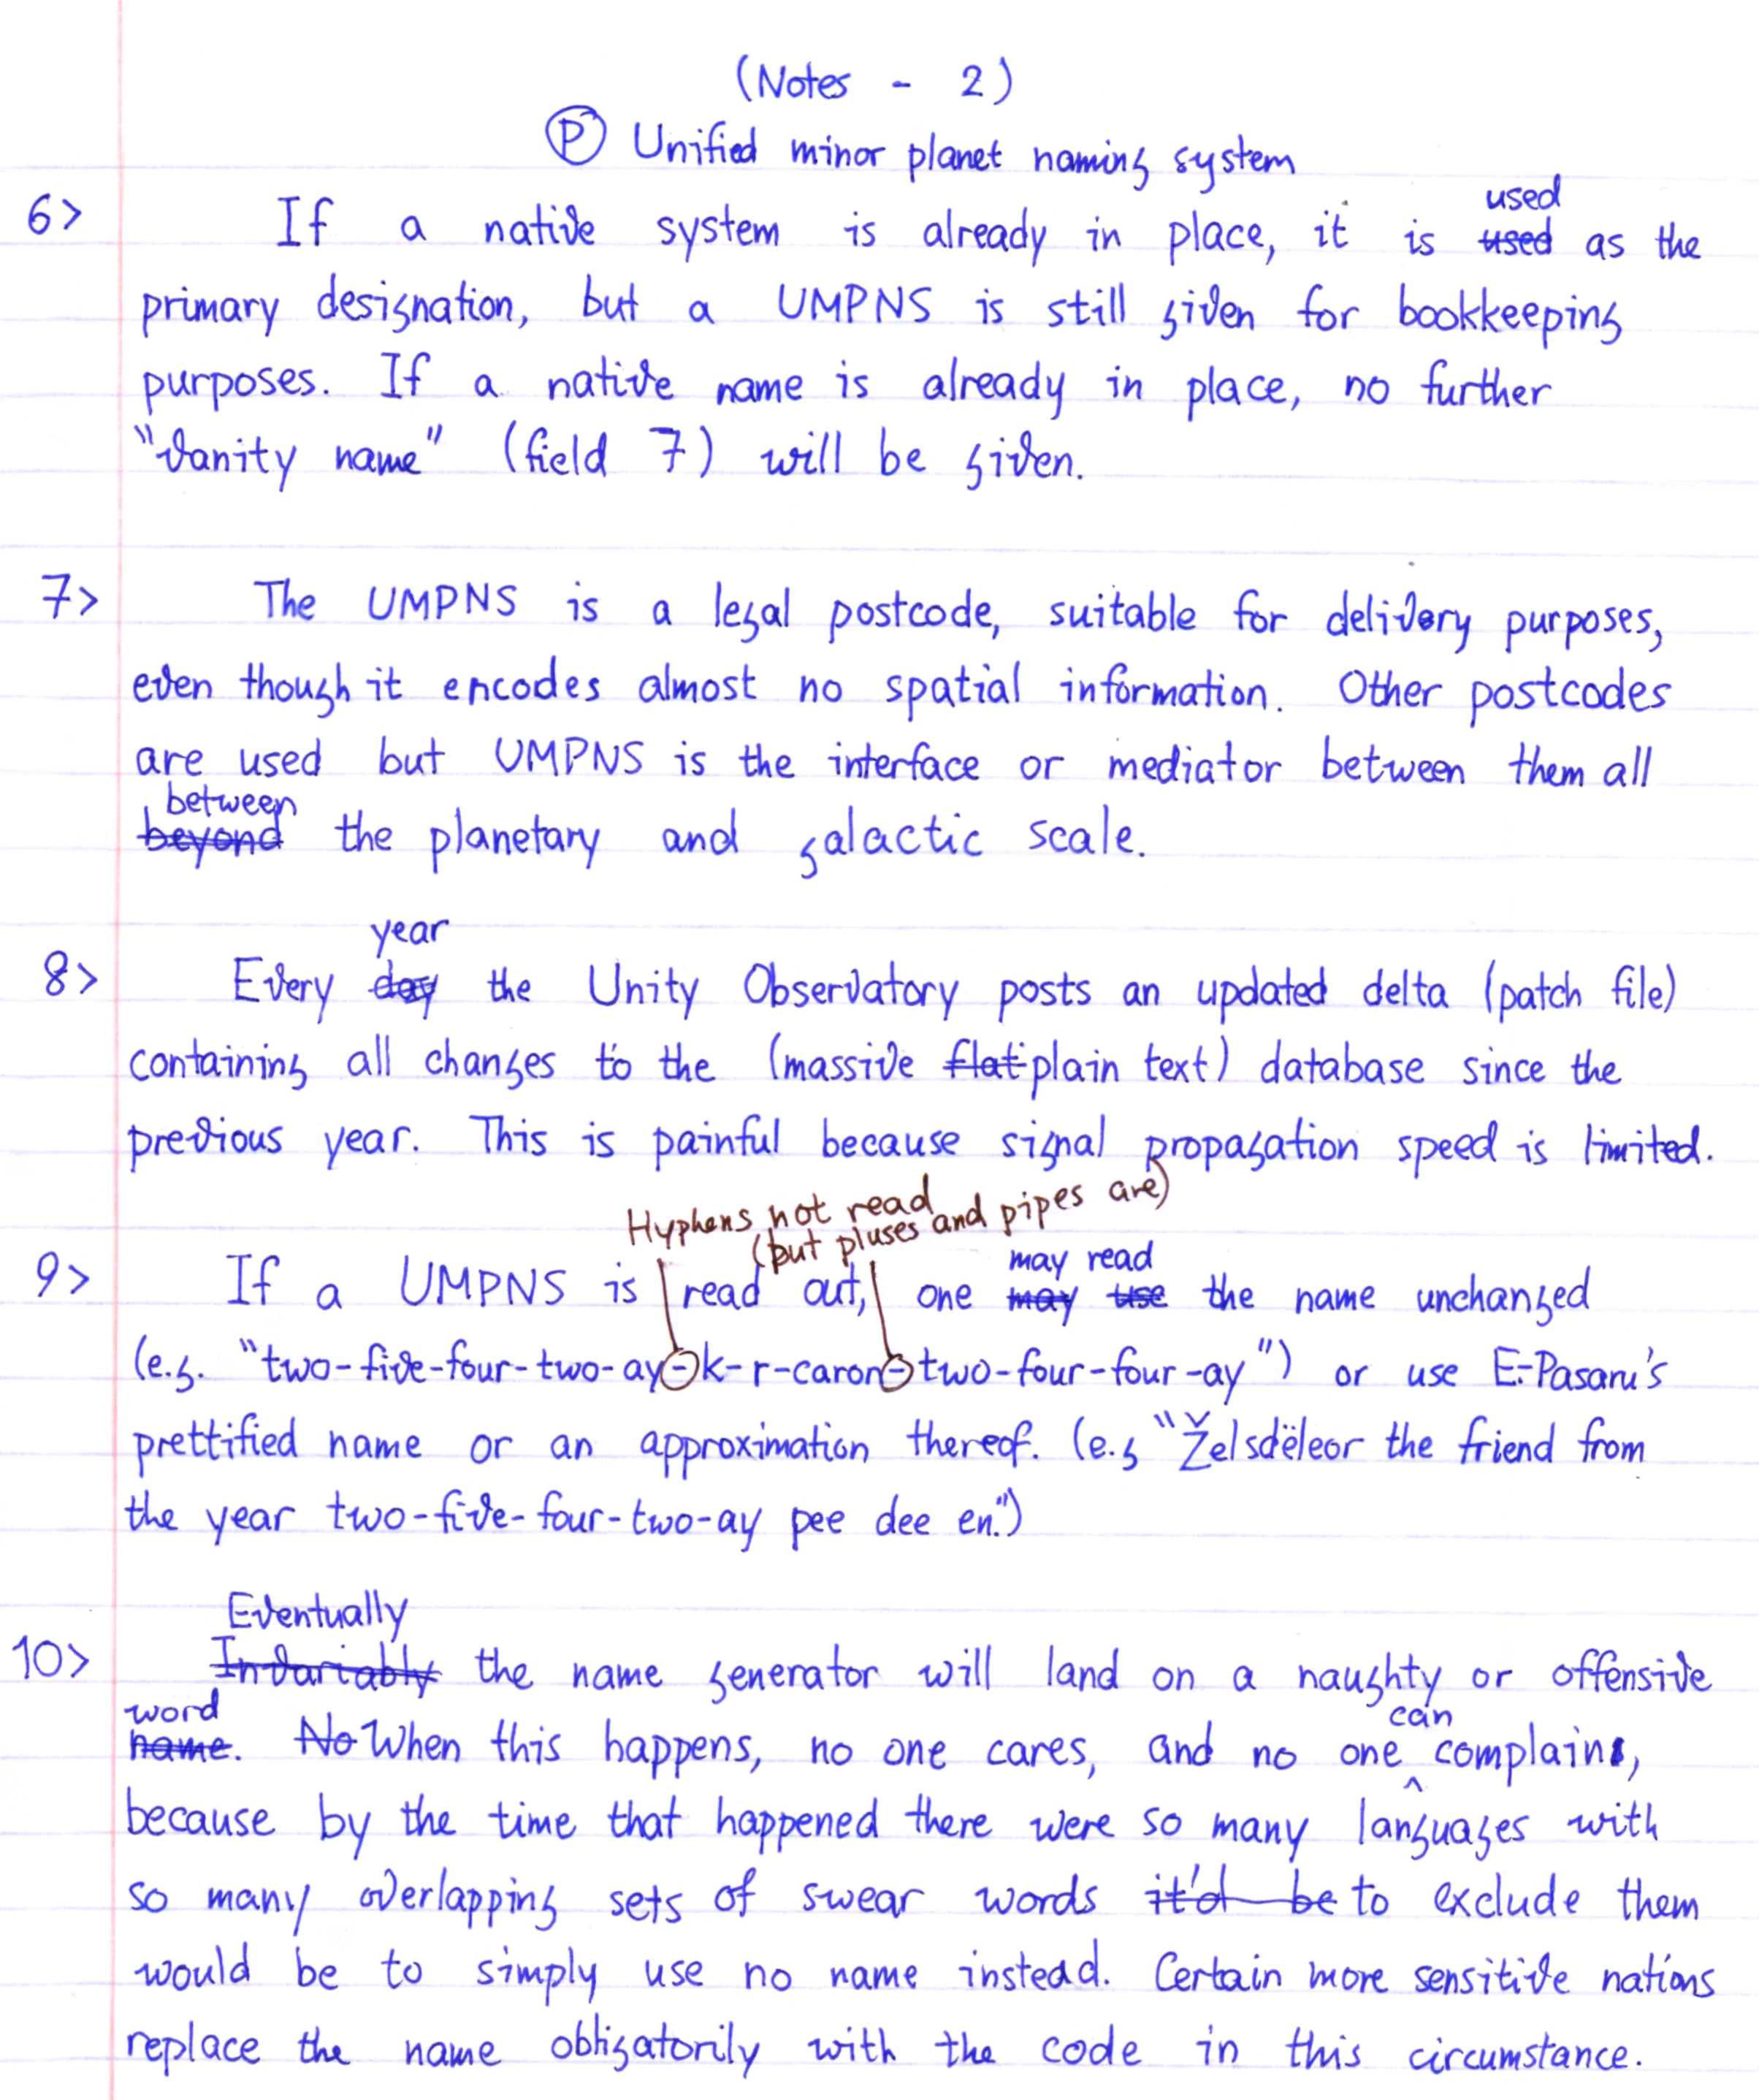 (Notes - 2)
Ⓟ Unified minor planet naming system
used
6> If a native system is already in place, it is used as the
primary designation, but a UMPNS is still given for bookkeeping
purposes. If a native name is already in place, no further
"vanity name" (field 7) will be given.
7> The UMPNS is a legal postcode, suitable for delivery purposes,
even though it encodes almost no spatial information. Other postcodes
are used but UMPNS is the interface or mediator between them all
between
beyond the planetary and galactic scale.
year
8> Every day the Unity Observatory posts an updated delta (patch file)
containing all changes to the (massive flat plain text) database since the
previous year. This is painful because signal propagation speed is limited.
Hyphens not read
(but pluses and pipes are)
may read
9> If a UMPNS is read out, one may use the name unchanged
(e.g. "two-five-four-two-ay-k-r-caron-two-four-four-ay") or use E-Pasaru's
prettified name or an approximation thereof. (e.g "Želsdëleor the friend from
the year two-five-four-two-ay pee dee en.")
Eventually
10> Invariably the name generator will land on a naughty or offensive
word
can
name. No When this happens, no one cares, and no one ^ complains,
because by the time that happened there were so many languages with
so many overlapping sets of swear words it'd be to exclude them
would be to simply use no name instead. Certain more sensitive nations
replace the name obligatorily with the code in this circumstance.